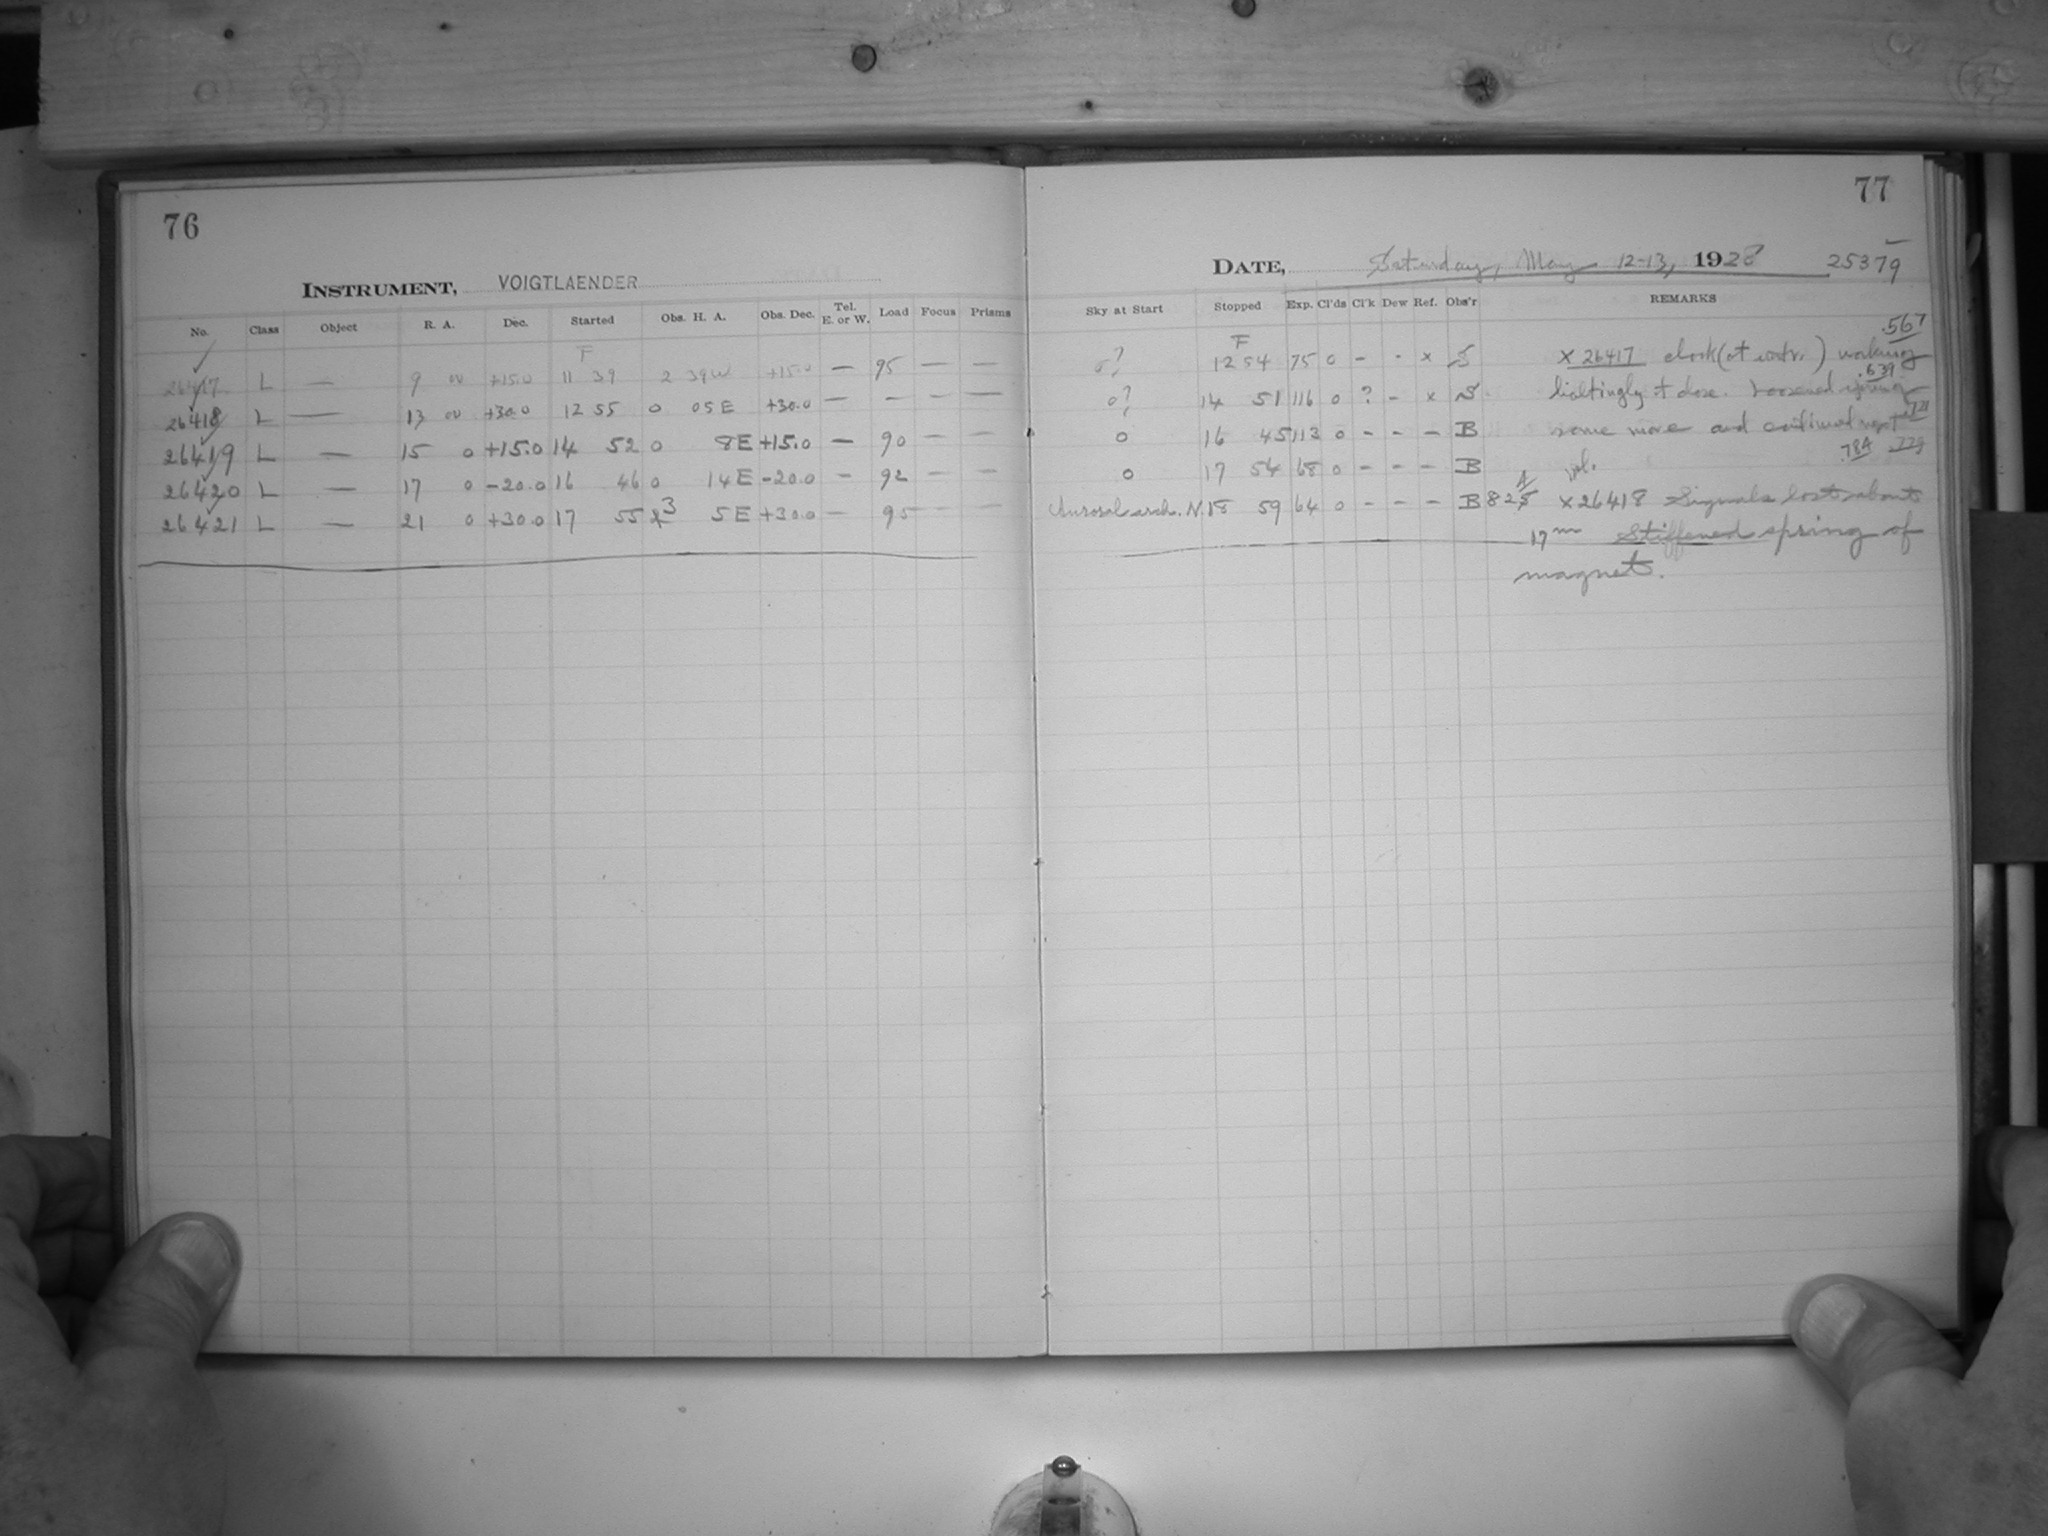 76
INSTRUMENT, VOIGTLAENDER
No. Class Object R. A. Dec. Started Obs. H. A. Obs. Dec. Tel. E. or W. Load Focus Prisms
F
26417 L — 9 00 +15.0 11 39 2 39W +15.0 — 95 — —
26418 L — 13 00 +30.0 12 55 0 05E +30.0 — - — —
26419 L — 15 0 +15.0 14 52 0 8E +15.0 — 90 — —
26420 L — 17 0 -20.0 16 46 0 14E -20.0 — 92 — —
26421 L — 21 0 +30.0 17 55 3 5E +30.0 — 95 — —
77
DATE, Saturday, May 12-13, 1928 25379
Sky at Start Stopped Exp. Cl'ds Cl'k Dew Ref. Obs'r REMARKS
F .567
0? 12 54 75 0 - - x S x 26417 clock (at ) working
.639
0? 14 51 116 0 ? - x S haltingly + close. Loosened spring
0 16 45 113 0 - - - B some more and continued next
.784 .728
0 17 54 68 0 - - - B
Auroral arch. N. 18 59 64 0 - - - B 825 x 26418 Signals lost about
17m Stiffened spring of
magnet.